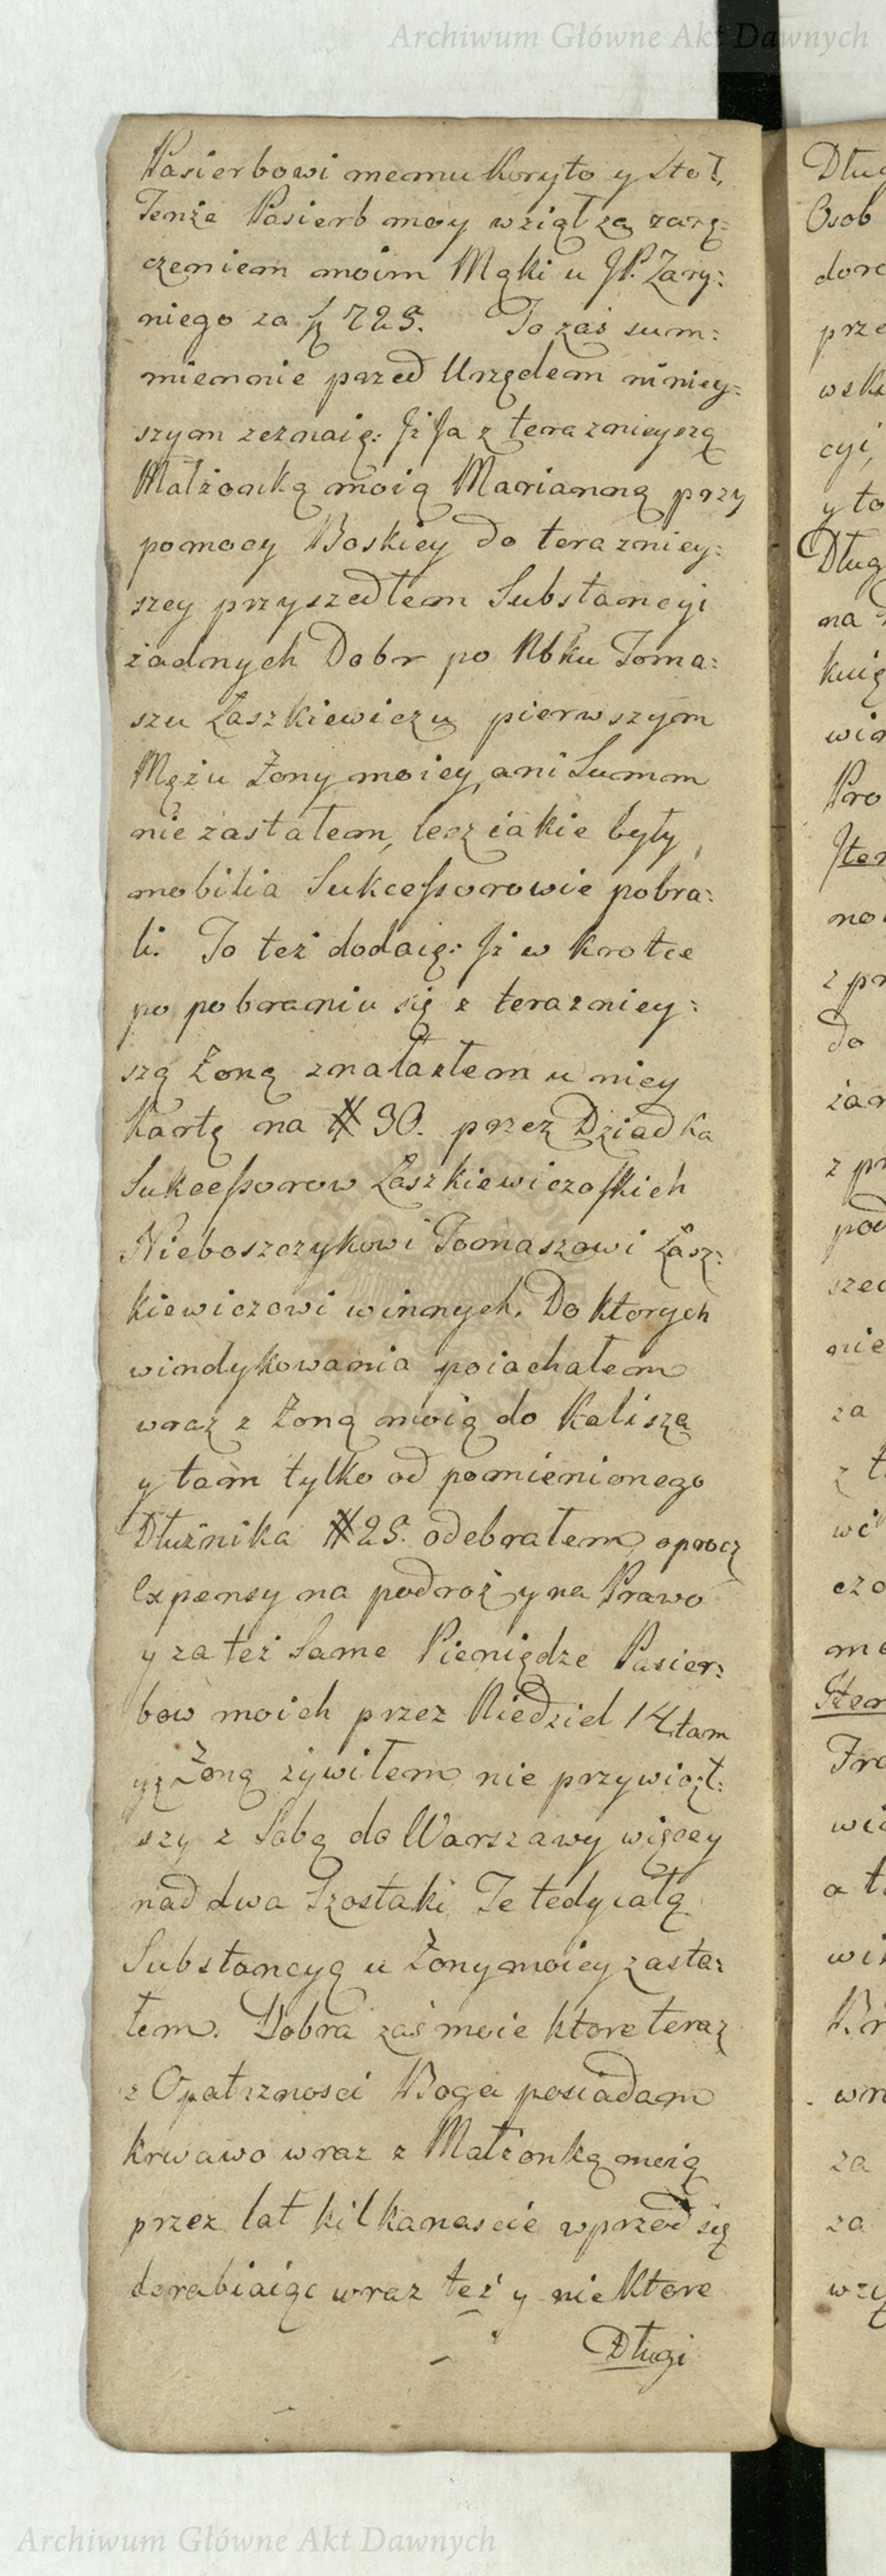 Archiwum Główne Akt Dawnych
Pasierbowi memu Koryto y Stoł,
Tenże Pasierb moy wziął za zarę:
czeniem moim Mąki u JP. Zary:
niego za 725. To zaś sum:
miennie przed Urzędem niniey:
szym zeznaię: Jż Ja z teraznieyszą
Małżonką moią Marianną przy
pomocy Boskiey do terazniey:
szey przyszedłem Substancyi
żadnych Dobr po Nbku Toma:
szu Łaszkiewiczu pierwszym
Mężu Żony moiey, ani Summ
nie zastałem, lecz iakie były,
mobilia Sukcessorowie pobra:
li. To też dodaię: Jż w krotce
po pobraniu się z terazniey:
szą Żoną znalazłem u niey
Kartę na # 30. przez Dziadka
Sukcessorow Łaszkiewiczoskich
Nieboszczykowi Tomaszowi Łasz:
kiewiczowi winnych. Do ktorych
windykowania poiachałem
wraz z Żoną moią do Kalisza
y tam tylko od pomienionego
Dłużnika # 25. odebrałem, oprocz
Expensy na podroż y na Prawo
y za też Same Pieniądze Pasier:
bow moich przez Niedziel 14 tam
y z Żoną żywiłem nie przywiozł:
szy z Sobą do Warszawy więcey
nad dwa Szostaki Te tedy całą
Substancyą u Żony moiey zasta:
łem. Dobra zaś moie ktore teraz
z Opatrznosci Boga posiadam
krwawo wraz z Małżonką moią
przez lat kilkanascie wprzod się
dorabiaiąc wraz też y niektore
Długi
Archiwum Główne Akt Dawnych